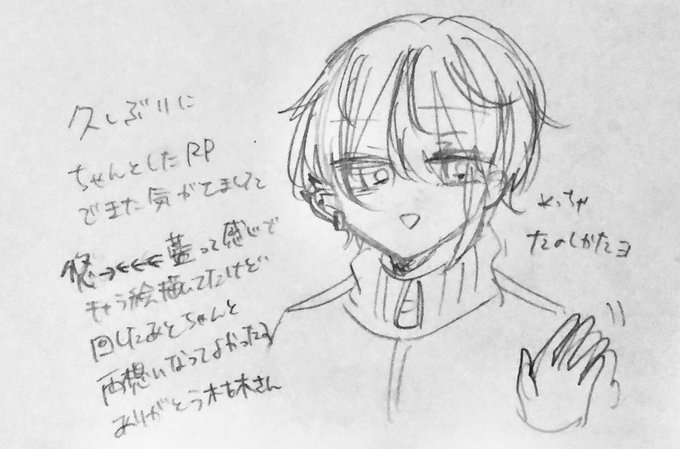 久しぶりに
ちゃんとしたRP
できた気がしてまして
悠→←←←藍って感じで
キャラ絵描いてたけど
回したあとちゃんと
両想いなってよかったヨ
ありがとう木さん
めっちゃ
たのしかたヨ